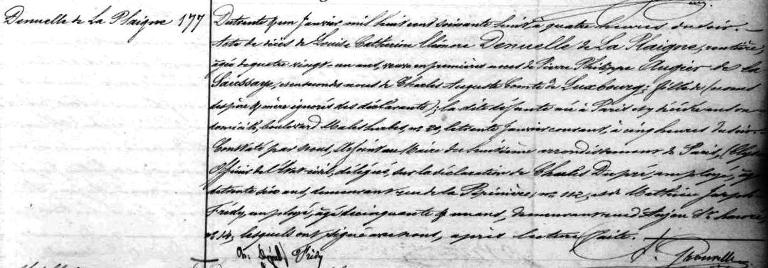 Denuelle de La Plaigne 177
Du trente & un Janvier mil huit cent soixante huit, à quatre heures du soir.
Acte de décès de Louise Catherine Eléonore Denuelle de La Plaigne, rentière,
âgée de quatre vingt un ans, veuve en premières noces de Pierre Philippe Augier de la
Saussaye, en secondes noces de Charles Auguste Comte de Luxbourg; fille de (noms
des père & mère ignorés des déclarants); la dite défunte née à Paris et y décédée en son
domicile, boulevard Malesherbes, nº 20, le trente Janvier courant, à cinq heures du soir.
Constaté par nous, Adjoint au Maire du huitième arrondissement de Paris,
Officier de l'état civil, délégué, sur la déclaration de Charles Dupré, employé, âgé
de trente six ans, demeurant rue de la Pépinière, nº 112, et de Mathieu Joseph
Frédy, employé, âgé de cinquante & un ans, demeurant rue d'Anjou St honoré,
nº 14, lesquels ont signé avec nous, après lecture faite.
Ch. Dupré Frédy